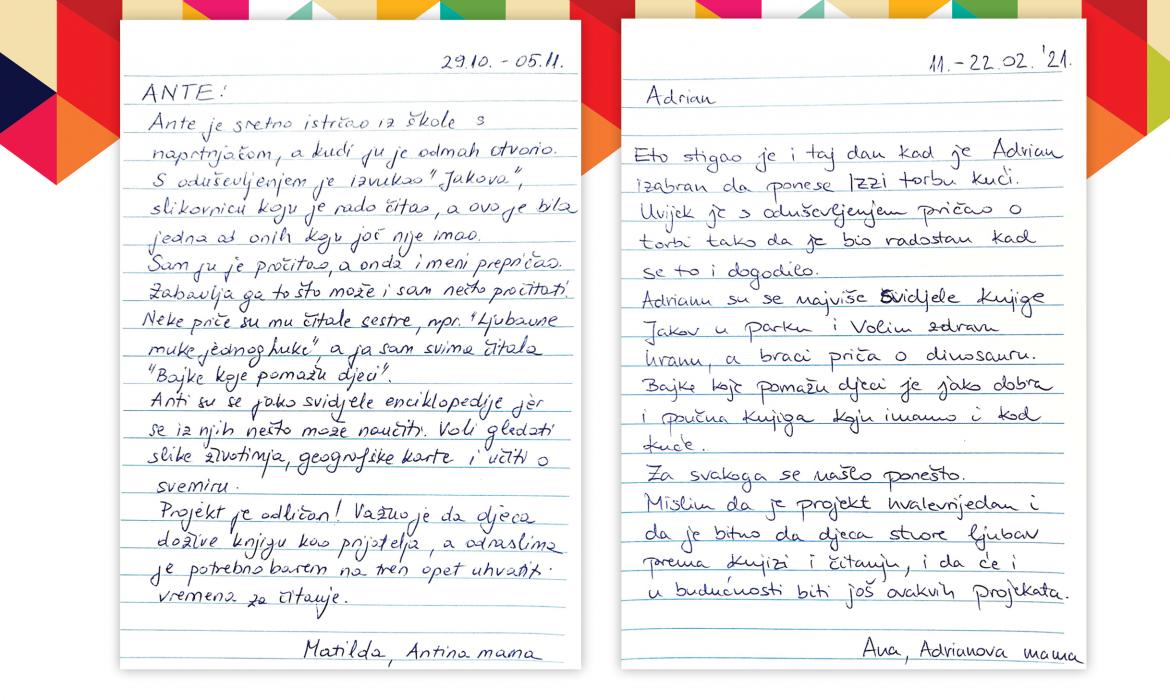 29.10. - 05.11.
ANTE!
Ante je sretno istrčao iz škole s
naprtnjačom, a kući ju je odmah otvorio.
S oduševljenjem je izvukao "Jakova",
slikovnicu koju je rado čitao, a ovo je bila
jedna od onih koju još nije imao.
Sam ju je pročitao, a onda i meni prepričao.
Zabavlja ga to što može i sam nešto pročitati.
Neke priče su mu čitale sestre, npr. "Ljubavne
muke jednog huke", a ja sam svima čitala
"Bajke koje pomažu djeci".
Anti su se jako svidjele enciklopedije jer
se iz njih nešto može naučiti. Voli gledati
slike životinja, geografske karte i učiti o
svemiru.
Projekt je odličan! Važno je da djeca
dožive knjigu kao prijatelja, a odraslima
je potrebno barem na tren opet uhvatiti
vremena za čitanje.
Matilda, Antina mama
11. - 22.02. '21.
Adrian
Eto stigao je i taj dan kad je Adrian
izabran da ponese IZZI torbu kući.
Uvijek je s oduševljenjem pričao o
torbi tako da je bio radostan kad
se to i dogodilo.
Adrianu su se najviše svidjele knjige
Jakov u parku i Volim zdravu
hranu, a braci priča o dinosauru.
Bajke koje pomažu djeci je jako dobra
i poučna knjiga koju imamo i kod
kuće.
Za svakoga se našlo ponešto.
Mislim da je projekt hvalevrijedan i
da je bitno da djeca stvore ljubav
prema knjizi i čitanju, i da će i
u budućnosti biti još ovakvih projekata.
Ana, Adrianova mama